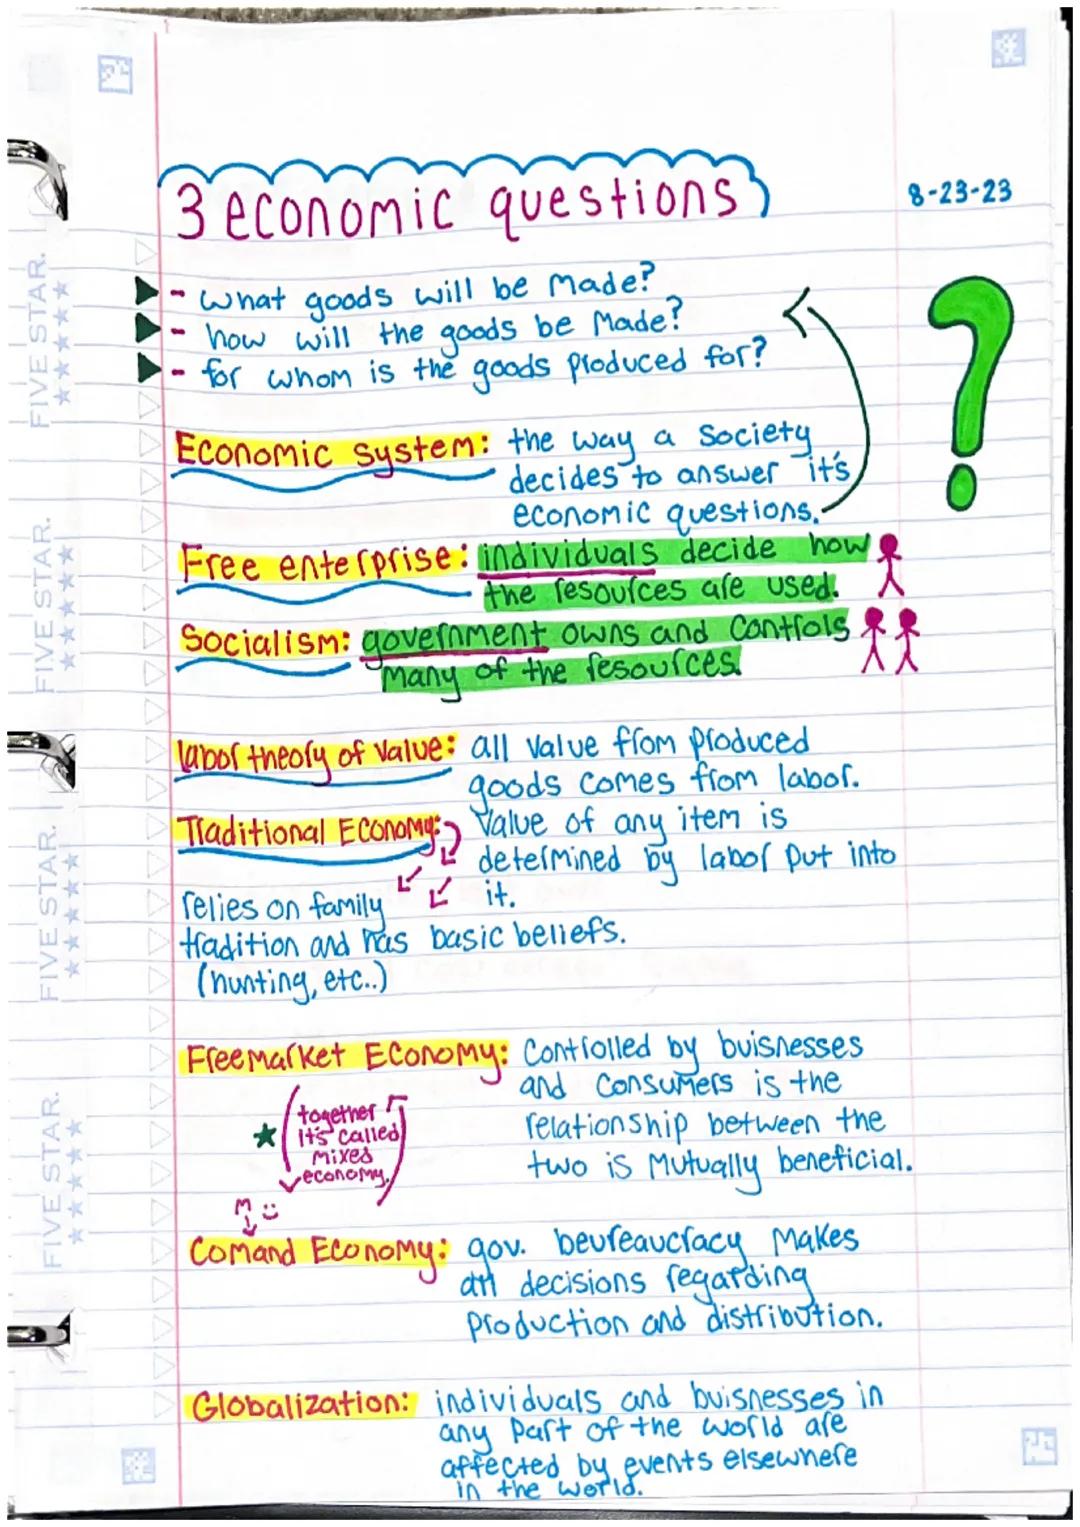 3 economic questions
8-23-23
- what goods will be made?
- how will the goods be made?
- for whom is the goods produced for?
Economic system: the way a society
decides to answer it's
economic questions.
Free enterprise: individuals decide how
the resources are used.
Socialism: government owns and controls
many of the resources.
labor theory of value: all value from produced
goods comes from labor.
value of any item is
determined by labor put into
it.
Traditional Economy:
relies on family
tradition and has basic beliefs.
(hunting, etc..)
Freemarket Economy: controlled by buisnesses
and consumers is the
relationship between the
two is mutually beneficial.
together
it's called
mixed
economy.
M :)
Comand Economy: gov. beureaucracy makes
all decisions regarding
production and distribution.
Globalization: individuals and buisnesses in
any part of the world are
affected by events elsewhere
in the world.
FIVE STAR.
FIVE STAR.
FIVE STAR.
FIVE STAR.